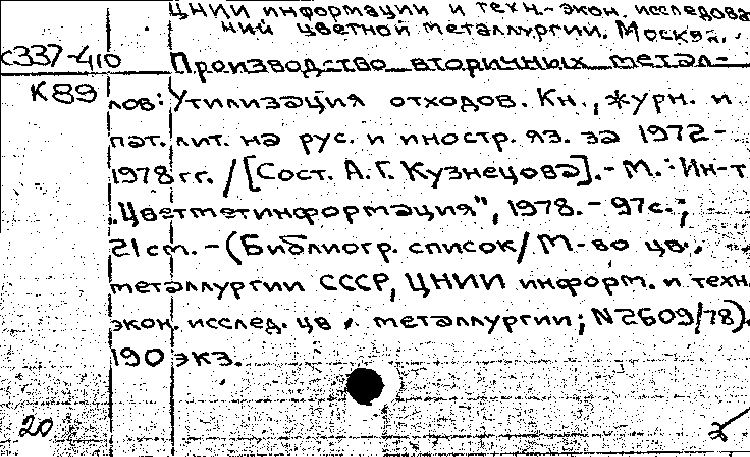 ЦНИИ информации и техн.-экон. исследова
ний цветной металлургии. Москва.
с337-410
Производство вторичных метал-
К89
лов: Утилизация отходов. Кн., журн. и
пат. лит. на рус. и иностр. яз. за 1972-
1978 гг. / [Сост. А.Г. Кузнецова]. - М.: Ин-т
"Цветметинформация", 1978. - 97с.;
21 см. - (Библиогр. список / М-во цв.
металлургии СССР, ЦНИИ информ. и техн.
экон. исслед. цв. металлургии; N2609/78).
190 экз.
20